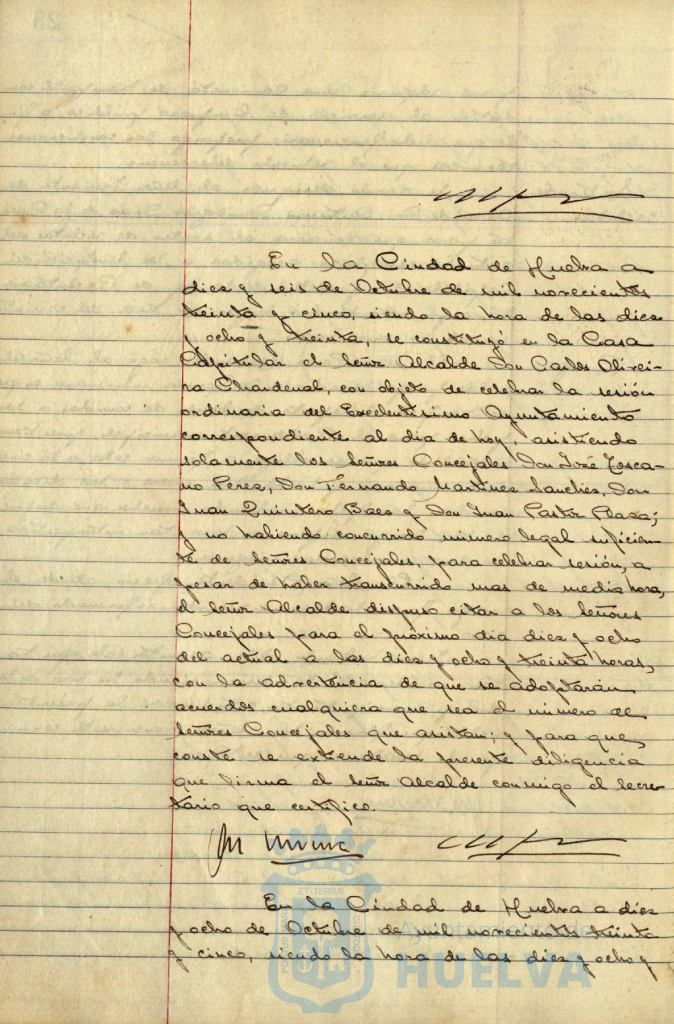 En la Ciudad de Huelva a
diez y seis de Octubre de mil novecientos
treinta y cinco, siendo la hora de las diez
y ocho y treinta, se constituyó en la Casa
Capitular el Señor Alcalde Don Carlos Olivei-
ra Chardenal, con objeto de celebrar la sesión
ordinaria del Excelentísimo Ayuntamiento
correspondiente al dia de hoy, asistiendo
solamente los Señores Concejales Don José Tosca-
no Perez, Don Fernando Martinez Sanchez, Don
Juan Quintero Baez y Don Juan Pastor Plaza;
y no habiendo concurrido número legal suficien-
te de Señores Concejales, para celebrar sesión, a
pesar de haber transcurrido mas de media hora,
el Señor Alcalde dispuso citar a los Señores
Concejales para el próximo dia diez y ocho
del actual a las diez y ocho y treinta horas,
con la advertencia de que se adoptarán
acuerdos cualquiera que sea el número de
Señores Concejales que asistan; y para que
conste se extiende la presente diligencia
que firma el Señor Alcalde conmigo el Secre-
tario que certifico.
En la Ciudad de Huelva a diez
y ocho de Octubre de mil novecientos treinta
y cinco, siendo la hora de las diez y ocho y
HUELVA